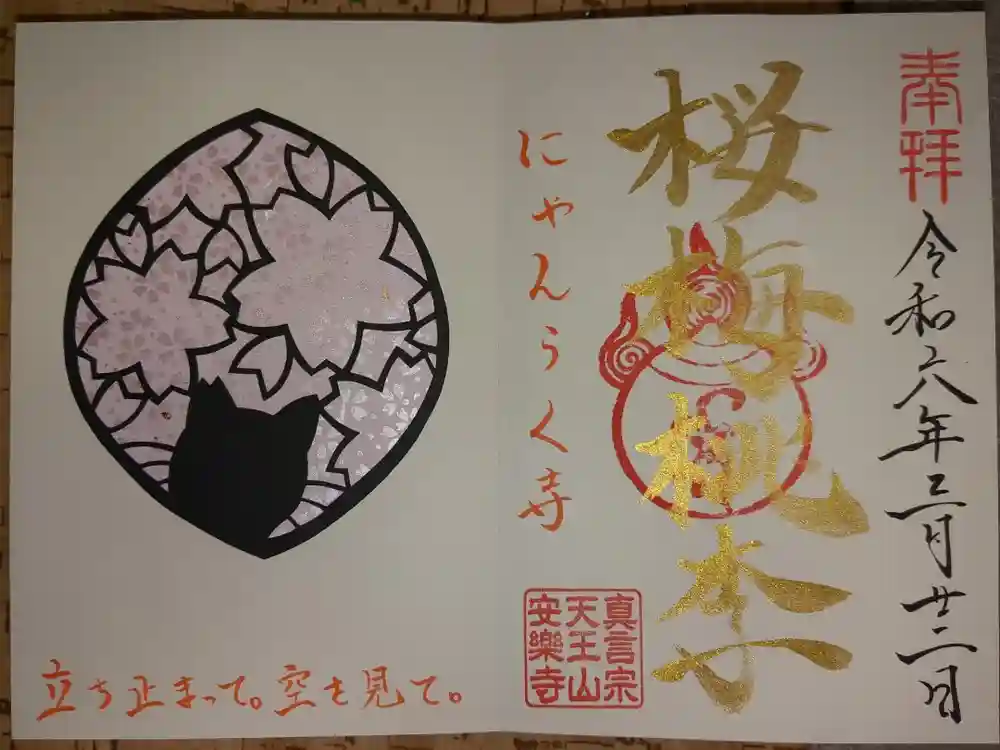 奉拝
令和六年三月廿二日
桜梅桃李
にゃんらく寺
真言宗
天王山
安樂寺
立ち止まって。空を見て。